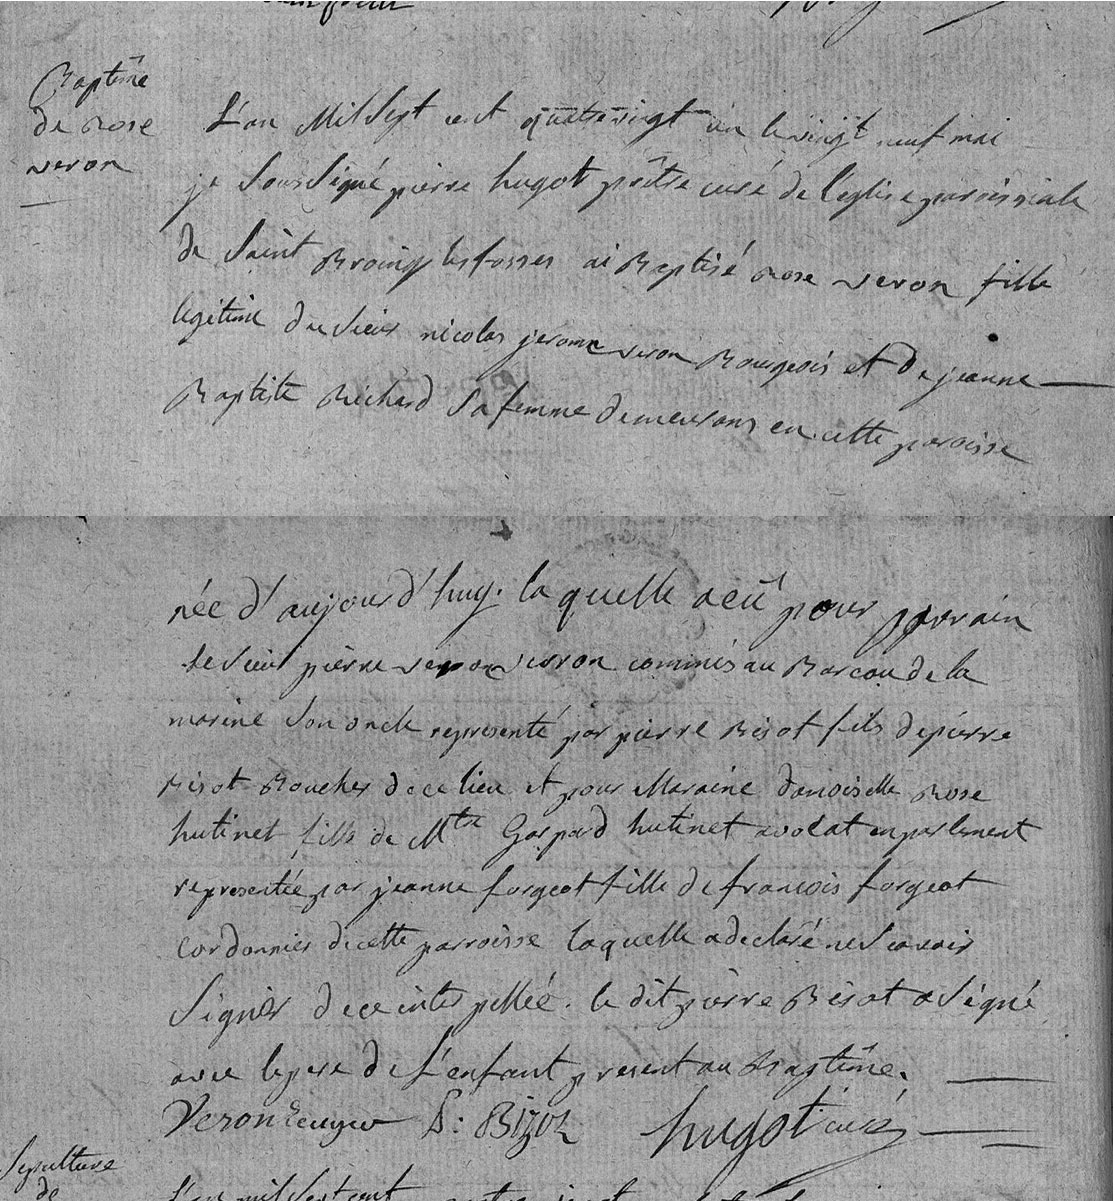 Baptême
de rose
veron
L'an Mil Sept cent quatrevingt un le vingt neuf mai
je Soussigné pierre hugot prêtre curé de l'eglise paroissiale
de Saint Broing les fosses ai Baptisé rose veron fille
legitime du Sieur nicolas jerome veron Bourgeois et de jeanne
Baptiste Richard Sa femme demeurans en cette paroisse
née d'aujourd'huy. laquelle a eû pour parrain
le Sieur pierre veron commis au Bureau de la
marine Son oncle representé par pierre Bisot fils de pierre
Bisot Boucher de ce lieu et pour Maraine demoiselle Rose
hutinet fille de Mtre Gaspard hutinet avocat en parlement
representée par jeanne forgeot fille de francois forgeot
Cordonnier de cette parroisse laquelle a declaré ne Scavoir
Signer de ce interpellée. le dit pierre Bisot a Signé
avec le pere de L'enfant present au Baptême.
Veron P: Bizot hugot curé
Sepulture
de
L'an mil Sept cent